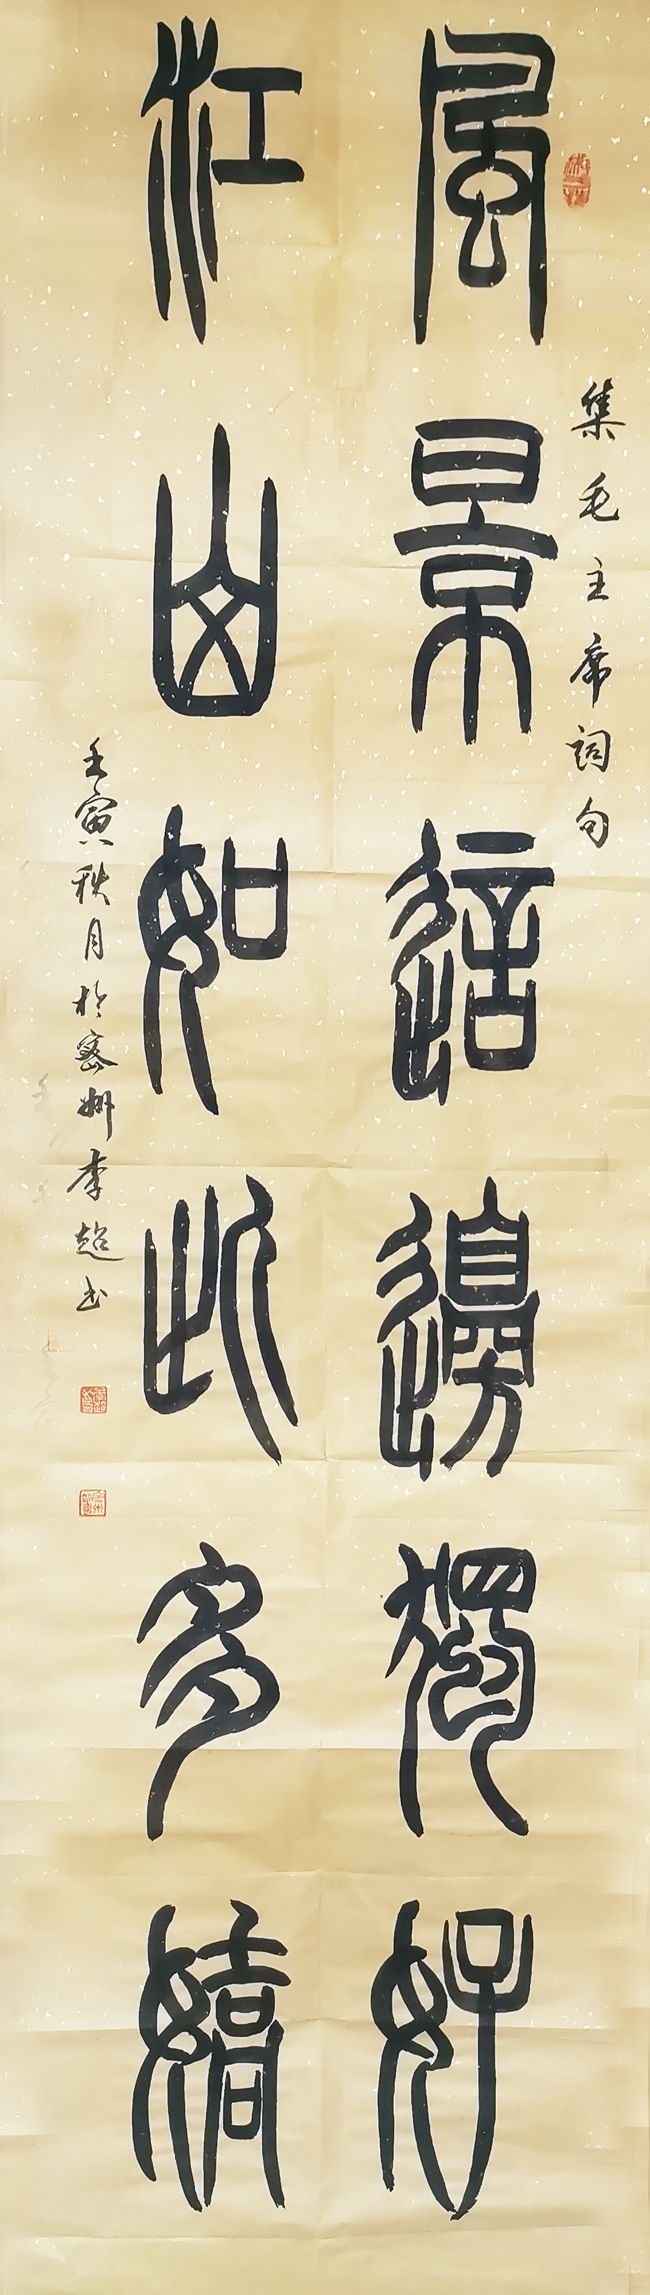 集毛主席詞句
風景這邊獨好
江山如此多嬌
壬寅秋月於密州李超書